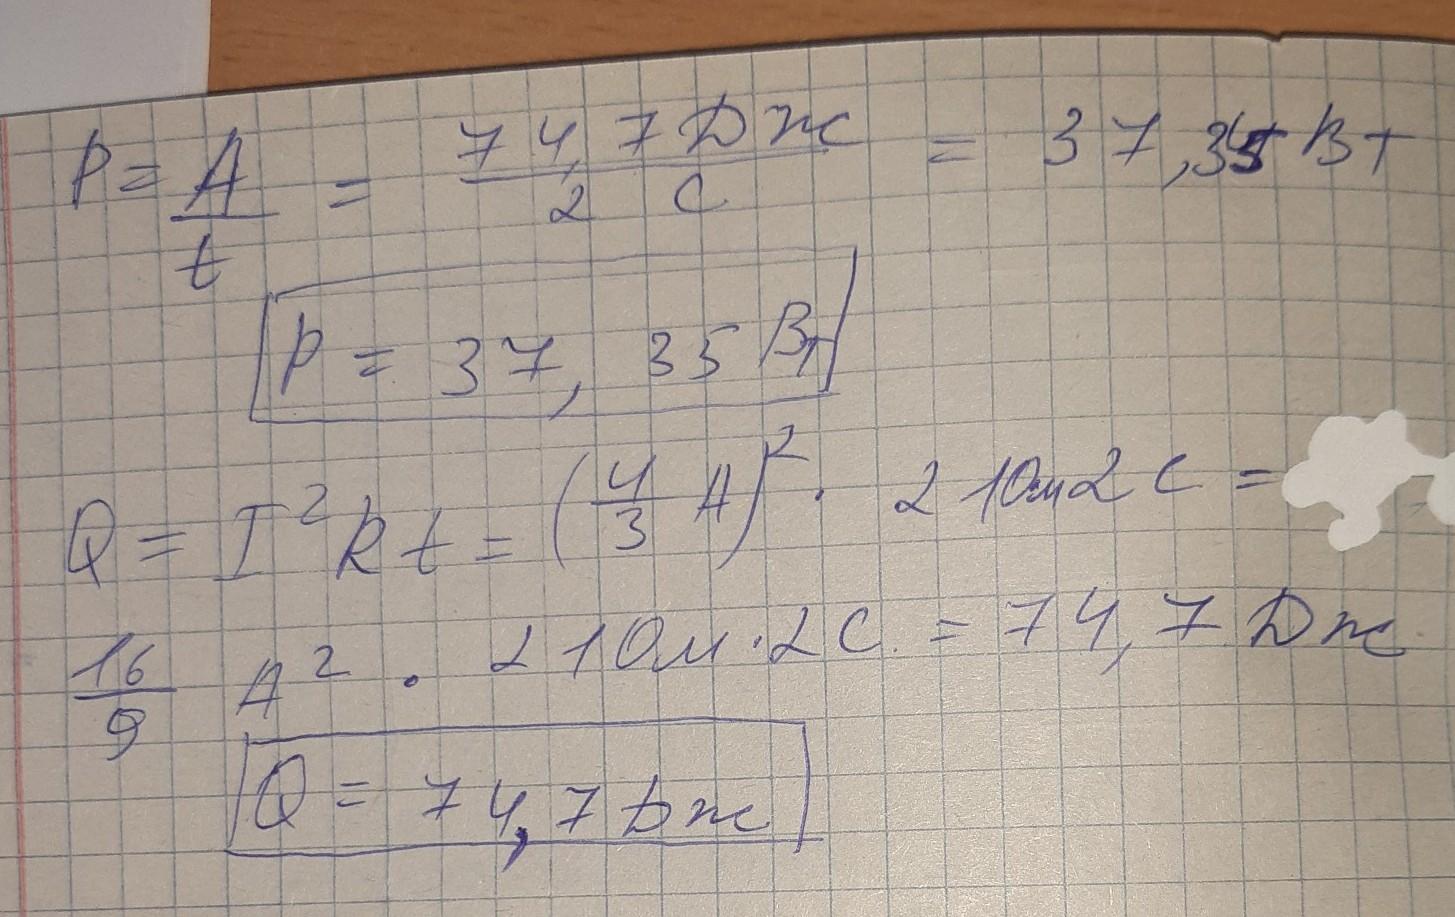 P = A/t = 74,7 Дж / 2 с = 37,35 Вт
P = 37,35 Вт
Q = I²Rt = (4/3 А)² · 21 Ом 2 с =
16/9 А² · 21 Ом · 2 с = 74,7 Дж
Q = 74,7 Дж